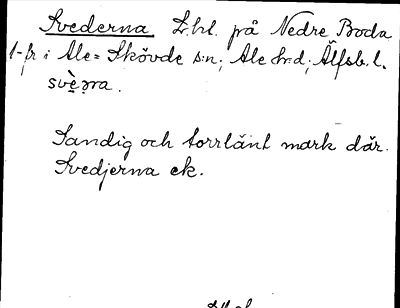 Svederna L.hl. på Nedre Boda
1-fr i Ale-Skövde sn; Ale hrd; Älfsb. l.
svè̤rna.
Sandig och torrländt mark där.
Svedjerna ek.